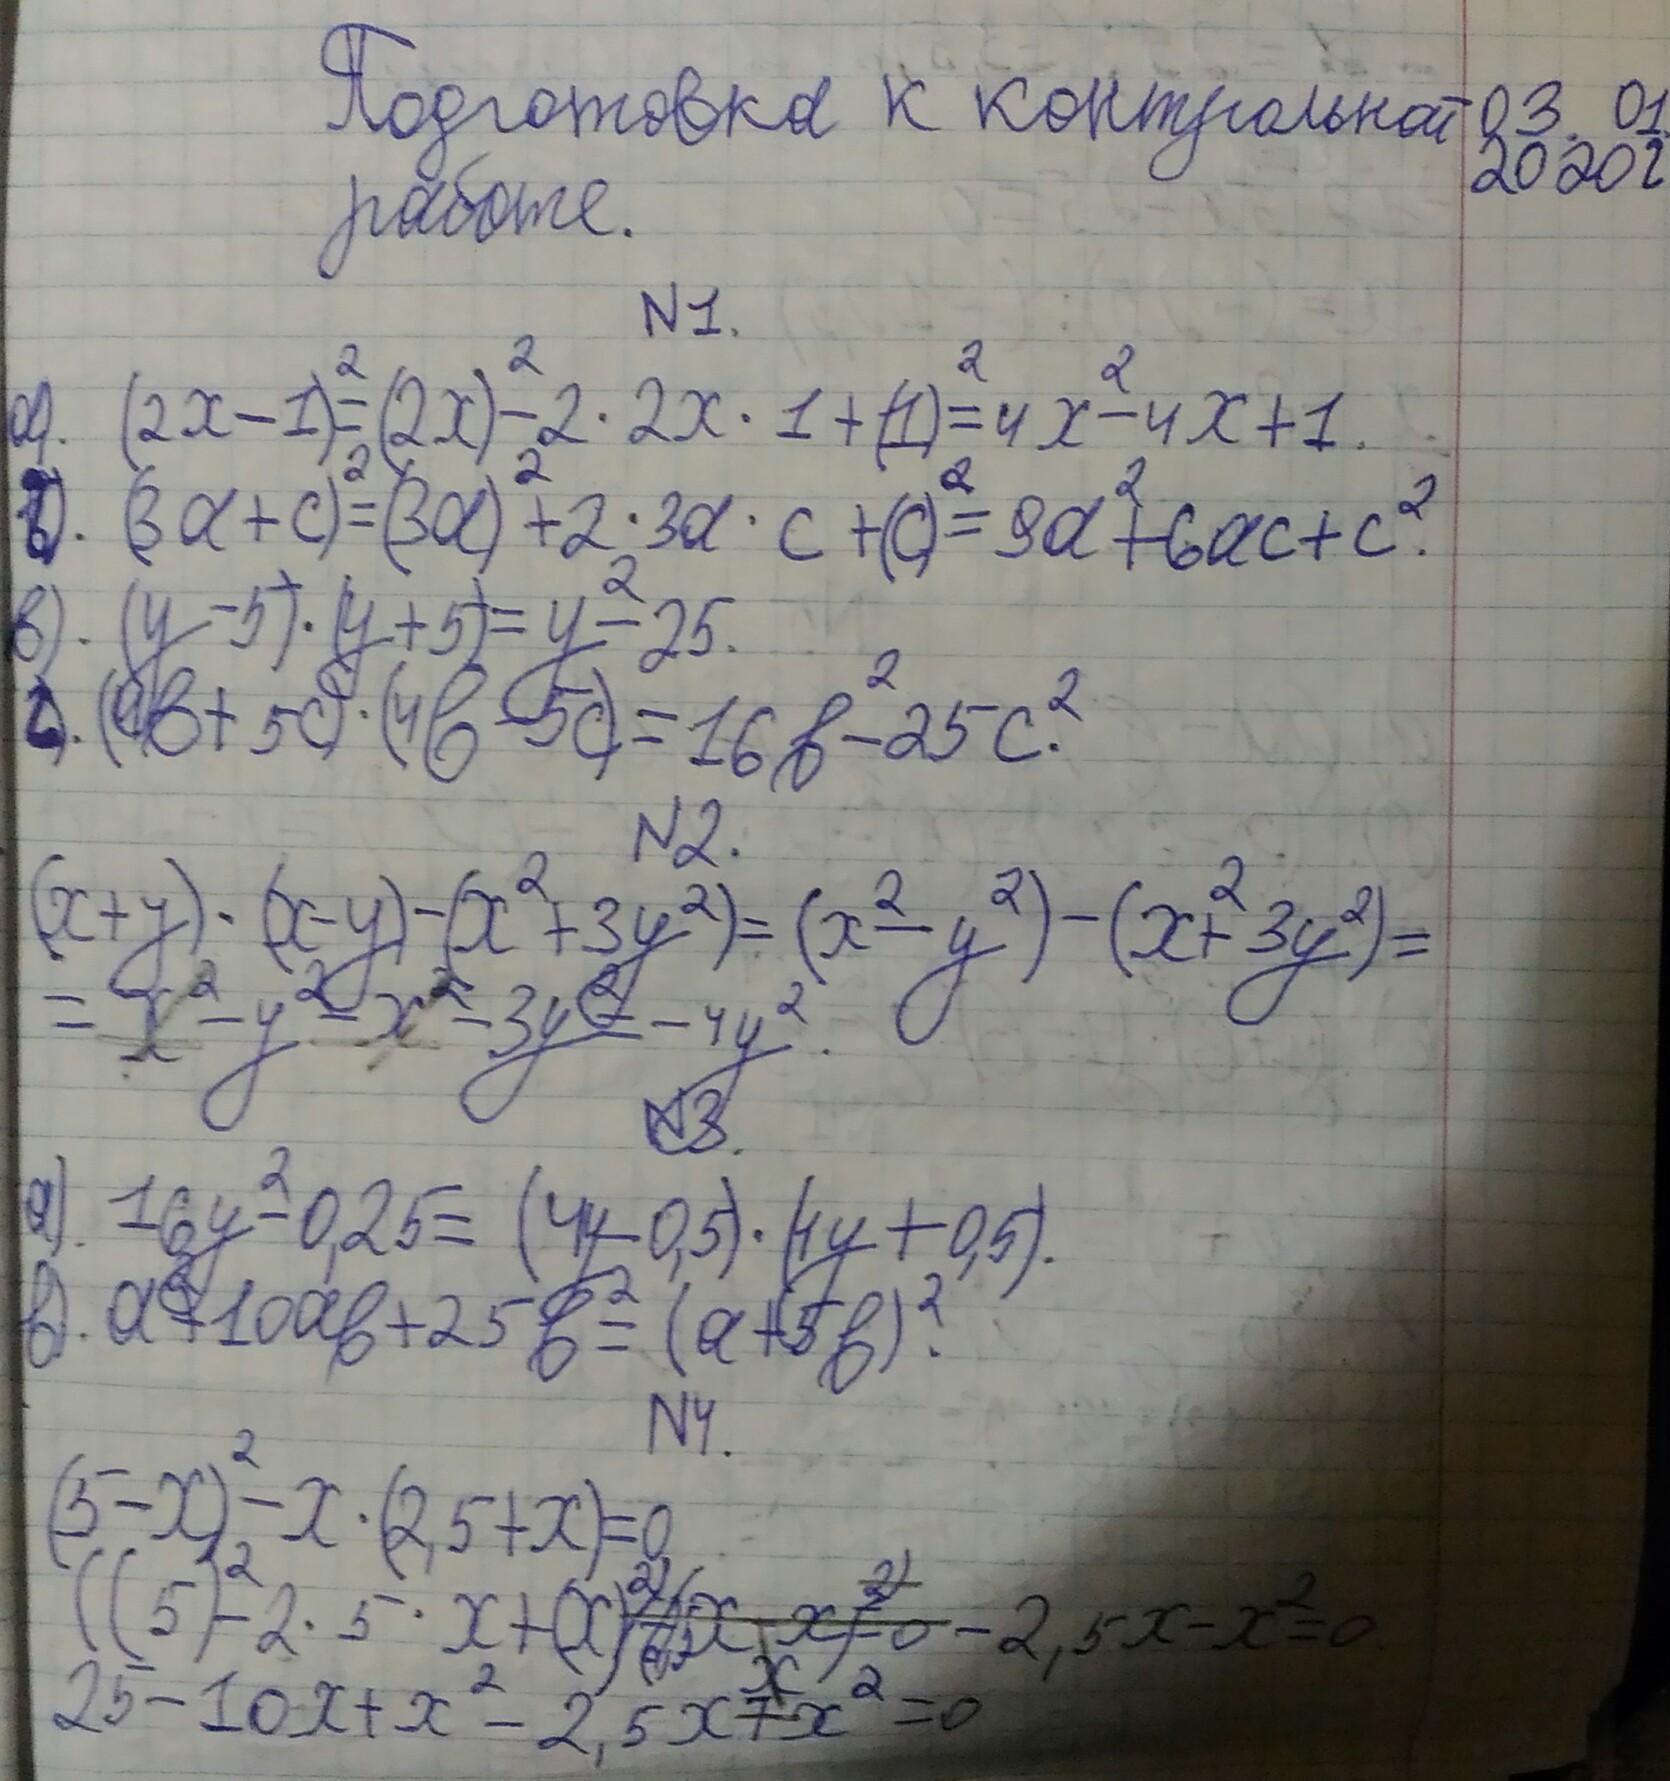 Подготовка к контрольной 03.01.
работе. 2020г
N1.
а). (2x-1)²=(2x)²-2·2x·1+(1)²=4x²-4x+1.
б). (3a+c)²=(3a)²+2·3a·c+(c)²=9a²+6ac+c².
в). (y-5)·(y+5)=y²-25.
г). (4b+5c)·(4b-5c)=16b²-25c².
N2.
(x+y)·(x-y)-(x²+3y²)=(x²-y²)-(x²+3y²)=
=x²-y²-x²-3y²=-4y².
N3.
а). 16y²-0,25=(4y-0,5)·(4y+0,5).
б). a²+10ab+25b²=(a+5b)².
N4.
(5-x)²-x·(2,5+x)=0
((5)²-2·5·x+(x)²)-2,5x-x²=0
25-10x+x²-2,5x-x²=0